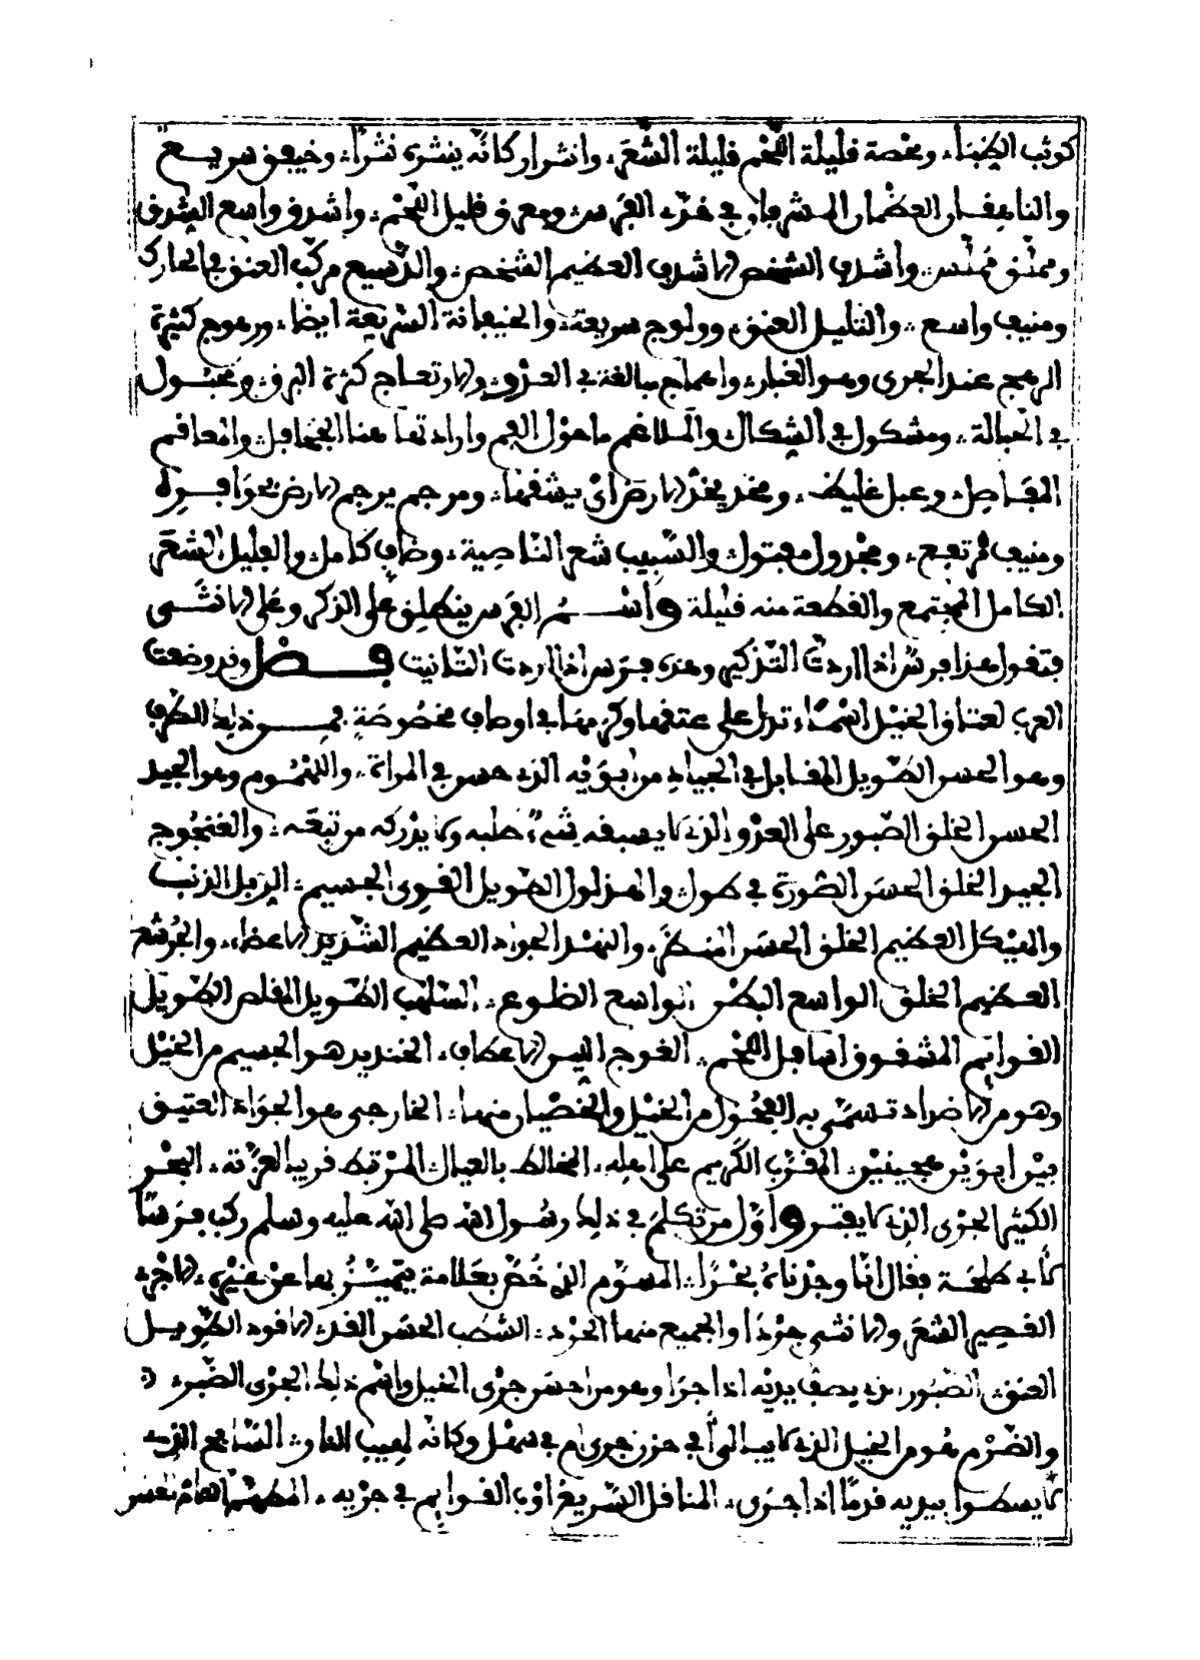 كوثب الظباء ومحصة قليلة اللحم قليلة الشعر وانشرار كانه ينشرى نشرا وخيفق سريع
والناهقان العظمان المشرفان في خدى الفرس ومعرق قليل اللحم واشدق واسع الشدق
وممثن ممتلس واشرف الشخص الاشرف العظيم الشخص والدسيع مركب العنق في الحارك
ومنيف واسع والتليل العنق وولوج سريعة والخيفانة السريعة ايضا ورهوج كثيرة
الرهج عند الجرى وهو الغبار واهماج مبالغة في العدو والارتعاج كثرة البرق ومحبول
في الحبالة ومشكول في الشكال والملاغم ما حول الفم واراد تها هنا الجحافل والمعاقم
المفاصل وعبل غليظ ومخد يخد الارض اي يشقها ومرجم يرجم الارض بحوافره
ومنيف مرتفع ومجدول مفتول والسبيب شعر الناصية وضاف كامل والقليل الشعر
الكامل المجتمع والقطعة منه فليلة واسم الفرس ينطلق على الذكر وعلى الانثى
فتقول هذا فرس اذا اردت التذكير وهذه فرس اذا اردت التانيت فصل وقد وضعت
العرب لعتاق الخيل اسماء تدل على عتقها وكرمها في اوصاف مخصوصة فمن ذلك الطرف
وهو الحسن الطويل المقابل في الجياد من ابويه الذى حسن في المراة واللهموم وهو الجيد
الحسن الخلق الصبور على العدو الذى لا يسبقه شيء طلبه ولا يدركه من تبعه والعنجوج
الجيد الخلق الحسن الصورة في طول والهذلول الطويل القوى الجسيم الذيل الذنب
والهيكل العظيم الخلق الحسن المنظر والنهد الجواد العظيم الشديد الاعضاء والجرشع
العظيم الخلق الواسع البطن الواسع الضلوع السلهب الطويل القلص الطويل
القوايم المشقوق اسافل اللحم الغوج اللين الاعطاف الخنديد هو الجسيم من الخيل
وهو من الاضداد تسمى به الفحول من الخيل والخصيان منها الخارجى هو الجواد العتيق
بين ابوين هجينين المقرب الكريم على اهله المخالط بالعيال المرتبط قريبا لعزته البحر
الكثير الجرى الذى لا يفتر واول من تكلم في ذلك رسول الله صلى الله عليه وسلم ركب فرسا
لابي طلحة فقال انا وجدناه بحرا المسوم الذى خص بعلامة يتميز بها عن غيره الاجرد
القصير الشعر والانثى جردا والجميع منها الجرد الشطب الحسن القد الاقود الطويل
العنق الضبور الذى يصف يديه اذا جرا وهو من احسن جرى الخيل واسم ذلك الجرى الضبر
والضرم هو من الخيل الذى لا يبالى أفي حزن جرى ام في سهل وكانه لهيب النار السابح الذى
لا يسطوا بيديه قدما اذا جرى المناقل السريع اوب القوايم في جريه المطهم التام الحسن